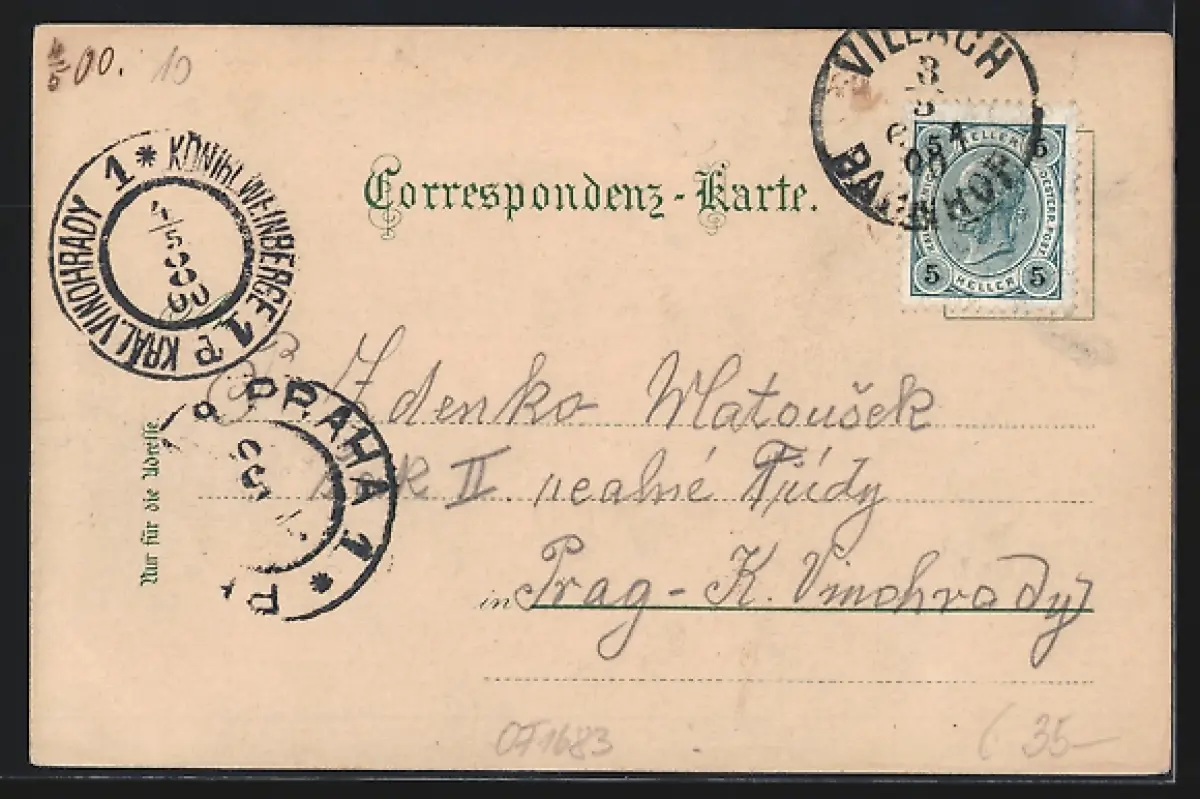 4/5 00. 10
VILLACH
3
5
00
BAHNHOF
5 HELLER 5
5 HELLER 5
KÖNIGL. WEINBERGE 1 KRÁL. VINOHRADY 1 *
4/5 00
Correspondenz-Karte.
PRAHA 1 *
Zdenko Matoušek
II. reálné Třídy
in Prag - K. Vinohrady
Nur für die Adresse
OT1683
35-